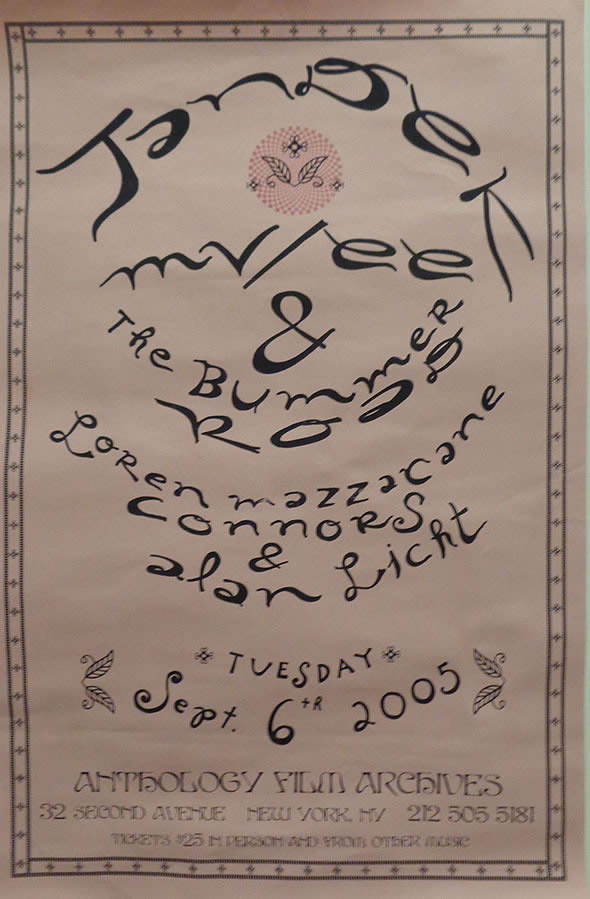 Jandek
mv/ee
&
The Bummer
Road
Loren mazzacane
Connors
&
alan Licht
TUESDAY
Sept. 6th 2005
ANTHOLOGY FILM ARCHIVES
32 SECOND AVENUE NEW YORK, NY 212 505 5181
TICKETS $25 IN PERSON AND FROM OTHER MUSIC